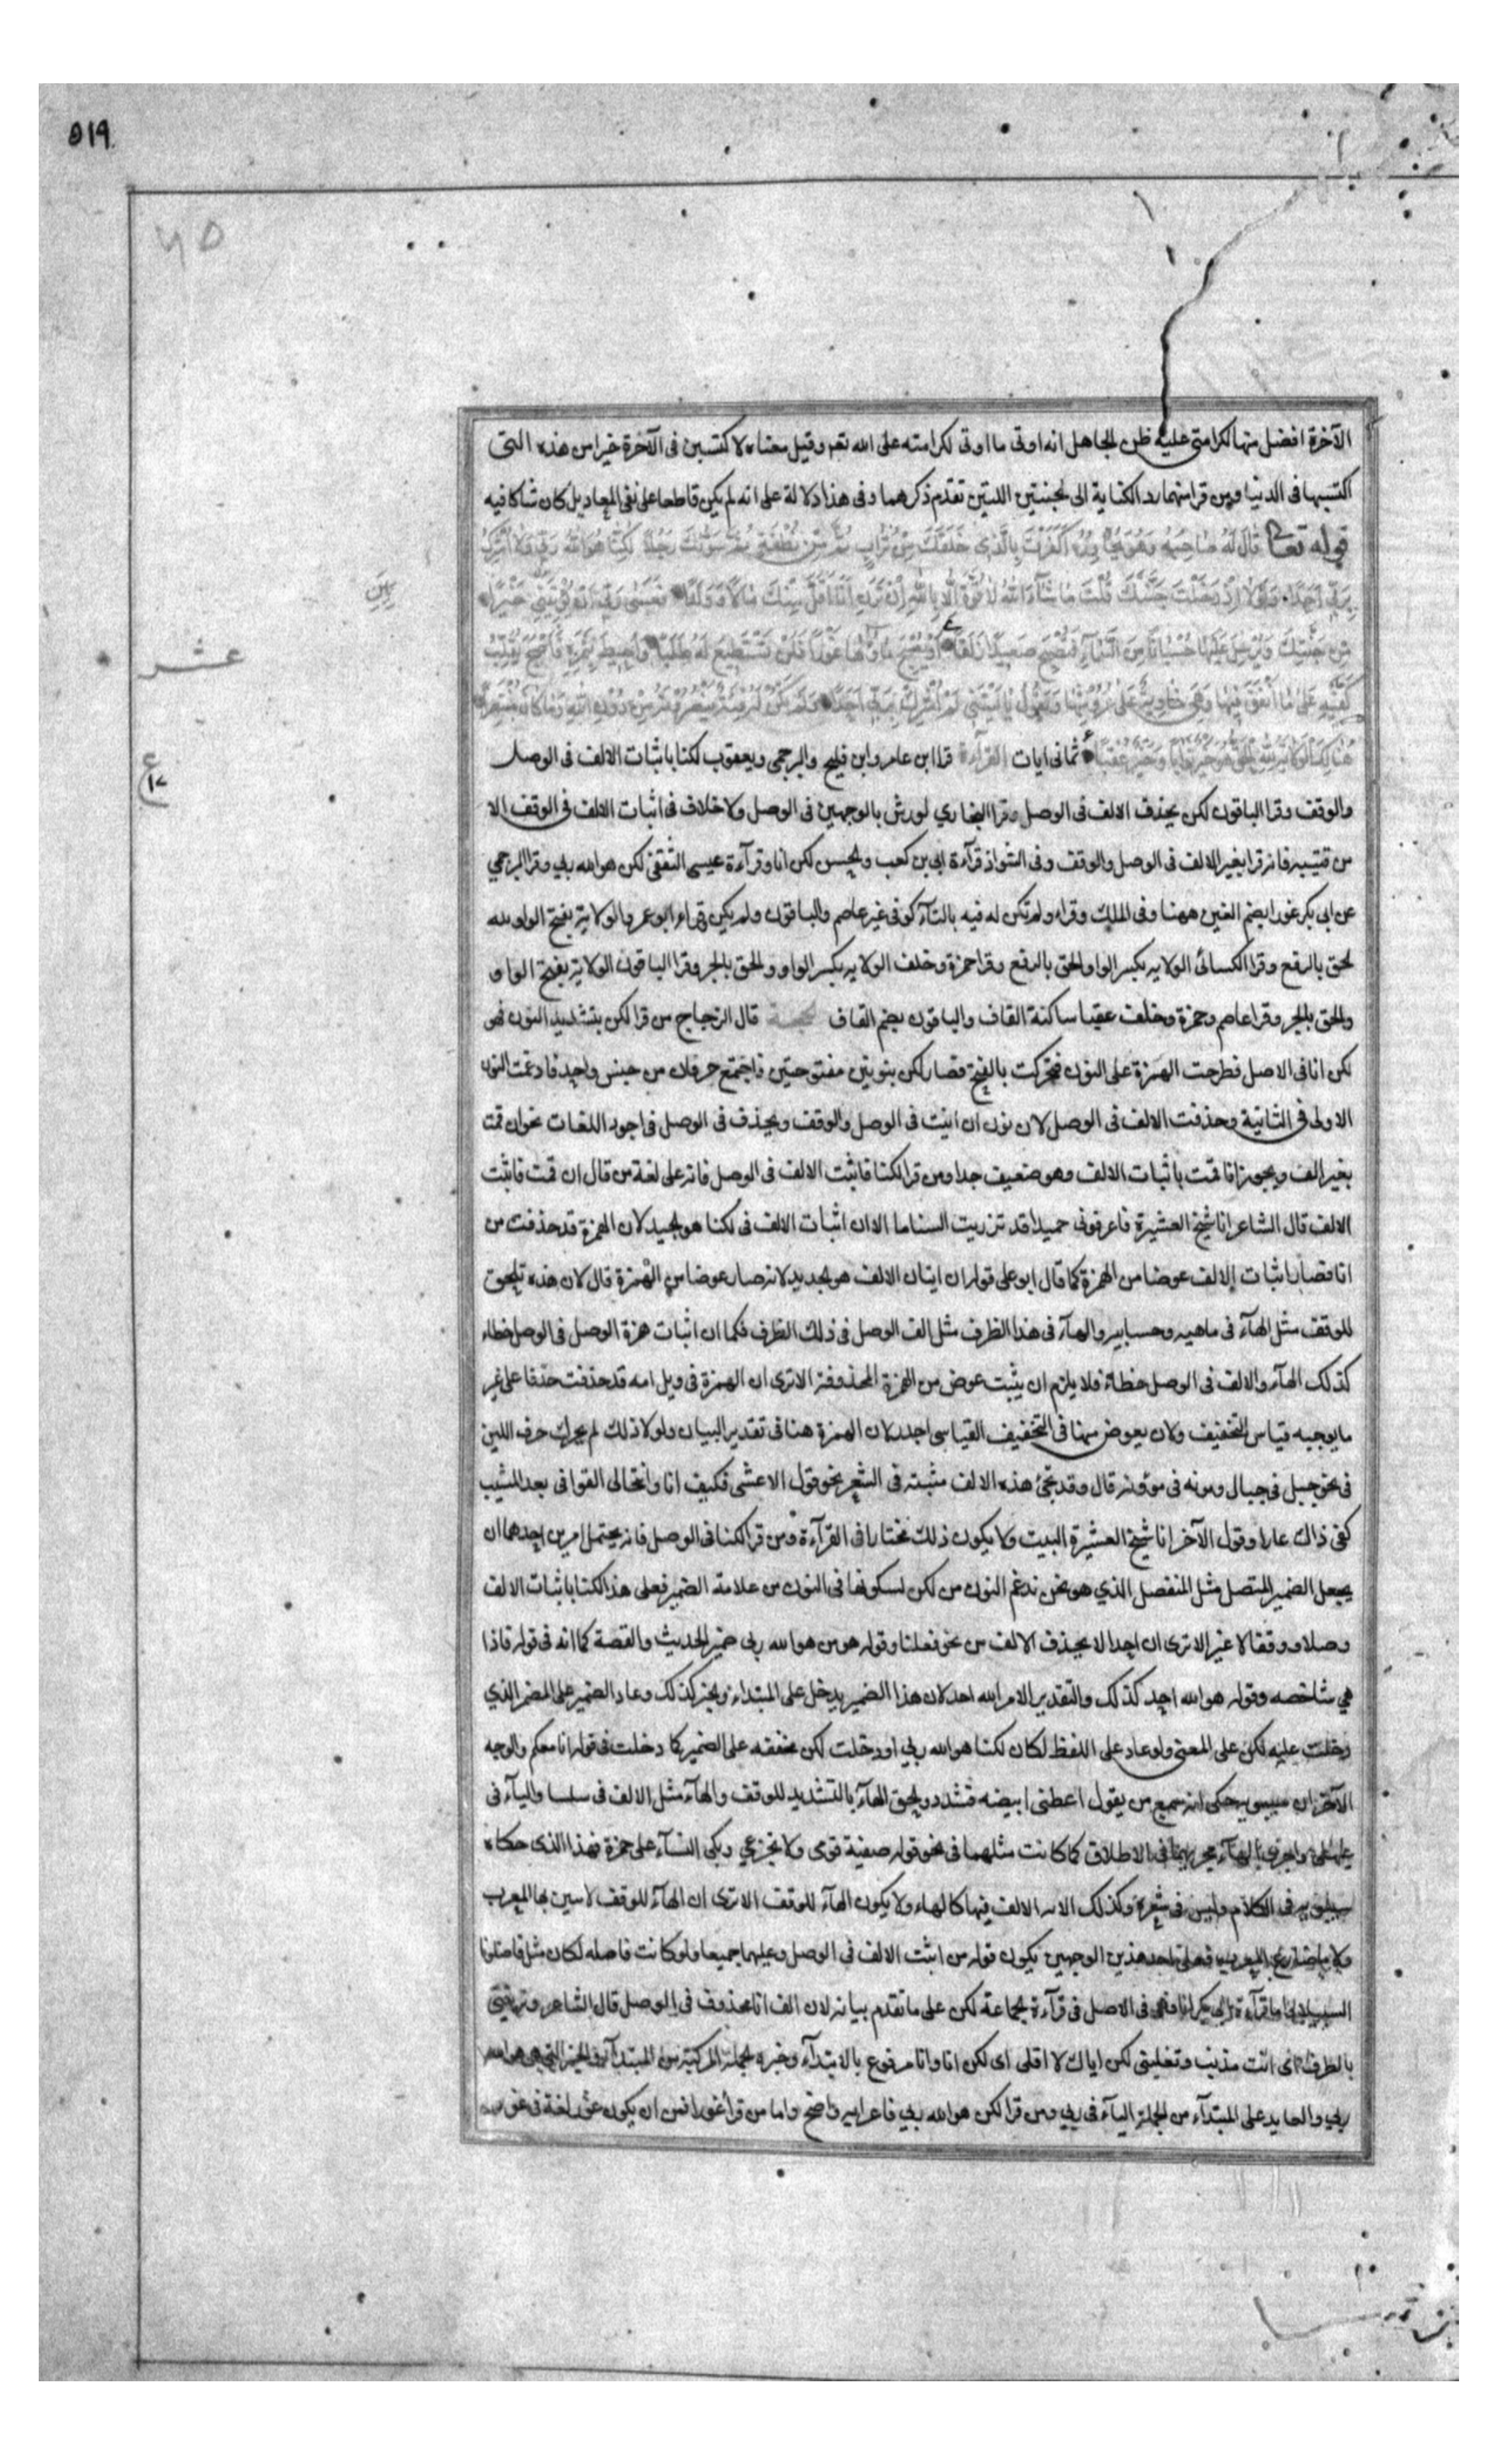 ٥١٩
٦٥
الآخرة افضل منها لكرامتى عليه ظن الجاهل انه اوتى ما اوتى لكرامته على الله تعـ وقيل معناه لاكتسبن فى الآخرة خيرا من هذه التى
اكتسبها فى الدنيا ومن قرا منهما رد الكناية الى الجنتين اللتين تقدم ذكرهما وفى هذا دلالة على انه لم يكن قاطعا على نفى المعاد بل كان شاكا فيه
قوله تعالى قَالَ لَهُ صَاحِبُهُ وَهُوَ يُحَاوِرُهُ أَكَفَرْتَ بِالَّذِى خَلَقَكَ مِنْ تُرَابٍ ثُمَّ مِنْ نُطْفَةٍ ثُمَّ سَوَّاكَ رَجُلًا لَكِنَّا هُوَ اللَّهُ رَبِّى وَلَا أُشْرِكُ
بِرَبِّى أَحَدًا وَلَوْلَا إِذْ دَخَلْتَ جَنَّتَكَ قُلْتَ مَا شَآءَ اللَّهُ لَا قُوَّةَ إِلَّا بِاللَّهِ إِنْ تَرَنِ أَنَا أَقَلَّ مِنْكَ مَالًا وَوَلَدًا فَعَسَى رَبِّى أَنْ يُؤْتِيَنِ خَيْرًا
مِنْ جَنَّتِكَ وَيُرْسِلَ عَلَيْهَا حُسْبَانًا مِنَ السَّمَآءِ فَتُصْبِحَ صَعِيدًا زَلَقًا أَوْ يُصْبِحَ مَآؤُهَا غَوْرًا فَلَنْ تَسْتَطِيعَ لَهُ طَلَبًا وَأُحِيطَ بِثَمَرِهِ فَأَصْبَحَ يُقَلِّبُ
كَفَّيْهِ عَلَى مَا أَنْفَقَ فِيهَا وَهِىَ خَاوِيَةٌ عَلَى عُرُوشِهَا وَيَقُولُ يَا لَيْتَنِى لَمْ أُشْرِكْ بِرَبِّى أَحَدًا وَلَمْ تَكُنْ لَهُ فِئَةٌ يَنْصُرُونَهُ مِنْ دُونِ اللَّهِ وَمَا كَانَ مُنْتَصِرًا
هُنَالِكَ الْوَلَايَةُ لِلَّهِ الْحَقِّ هُوَ خَيْرٌ ثَوَابًا وَخَيْرٌ عُقْبًا ثمانى ايات القراءة قرا ابن عامر وابن فليح والبرجمى ويعقوب لكنا باثبات الالف فى الوصل
والوقف وقرا الباقون لكن بحذف الالف فى الوصل وقرا البخاري لورش بالوجهين فى الوصل ولا خلاف فى اثبات الالف فى الوقف الا
من قتيبه فانه قرا بغير الالف فى الوصل والوقف وفى الشواذ قرآءة ابى بن كعب والحسن لكن انا وقرآءة عيسى الثقفى لكن هو الله ربي وقرا البرجمي
عن ابى بكر غورا بضم الغين ههنا وفى الملك وقراه ولم تكن له فيه بالتآء كوفى غير عاصم والباقون ولم يكن بالياء ابو عمرو الولاية بفتح الواو لله
الحق بالرفع وقرا الكسائى الولايه بكسر الواو الحق بالرفع وقرا حمزة وخلف الولايه بكسر الواو والحق بالجر وقرا الباقون الولاية بفتح الواو
والحق بالجر وقرا عاصم وحمزة وخلف عقبا ساكنة القاف والباقون بضم القاف الحجـة قال الزجاج من قرا لكن بتشديد النون فهو
لكن انا فى الاصل فطرحت الهمزة على النون فتحركت بالفتح فصار لكن بنونين مفتوحتين فاجتمع حرفان من جنس واحد فادغمت النون
الاولى فى الثانية وحذفت الالف فى الوصل لان نون ان اثبت فى الوصل والوقف ويحذف فى الوصل فى اجود اللغات نحو ان قمت
بغير الف ويجوز انا قمت باثبات الالف وهو ضعيف جدا ومن قرا لكنا فاثبت الالف فى الوصل فانه على لغة من قال ان قمت فاثبت
الالف قال الشاعر انا شيخ العشيرة فاعرفونى حميدا قد تذريت السناما الا ان اثبات الالف فى لكنا هو الجيد لان الهمزة قد حذفت من
انا فصار اثبات الالف عوضا من الهمزة كما قال ابو على قوله ان اثبات الالف هو الجديد لانه صار عوضا من الهمزة قال لان هذه تلحق
للوقف مثل الهآء فى ماهيه وحسابيه والهآء فى هذا الطرف مثل الف الوصل فى ذلك الطرف فكما ان اثبات همزة الوصل فى الوصل خطاء
كذلك الهآء والالف فى الوصل خطاء فلا يلزم ان يثبت عوض من الهمزة المحذوفة الا ترى ان الهمزة فى ويل امه قد حذفت حذفا على غير
ما يوجبه قياس التخفيف ولان يعوض منها فى التخفيف القياسى اجدر لان الهمزة هنا فى تقدير البيان ولولا ذلك لم يحرك حرف اللين
فى نحو جيل فى جيال ومونه فى موونه قال وقد تجئ هذه الالف مثبته فى الشعر نحو قول الاعشى فكيف انا وانتحالى القوافى بعد المشيب
كفى ذاك عارا وقول الآخر انا شيخ العشيرة البيت ولا يكون ذلك مختارا فى القرآءة ومن قرا لكنا فى الوصل فانه يحتمل امرين احدهما ان
يجعل الضمير المتصل مثل المنفصل الذي هو نحن ندغم النون من لكن لسكونها فى النون من علامة الضمير فعلى هذا لكنا باثبات الالف
وصلا ووقفا لا غير الا ترى ان احدا لا يحذف الالف من نحو فعلنا وقوله هو من هو الله ربى ضمير الحديث والقصة كما انه فى قوله فاذا
هي شاخصه وقوله هو الله احد كذلك والتقدير الامر الله احد لان هذا الضمير يدخل على المبتداء والخبر كذلك وعاد الضمير على المضمر الذي
دخلت عليه لكن على المعنى ولو عاد على اللفظ لكان لكنا هو الله ربي او دخلت لكن مخففه على الضمير كما دخلت فى قوله انا معكم والوجه
الآخر ان سيبويه حكى انه سمع من يقول اعطنى ابيضه فشدد والحق الهآء بالتشديد للوقف والهآء مثل الالف فى سلسا واليآء فى
واجرى الهآء مجريهما فى الاطلاق كما كانت مثلهما فى نحو قوله صفية قومى ولا تجزعي وبكى النسآء على حمزة فهذا الذى حكاه
سيبويه فى الكلام وليس فى شعر وكذلك الالف فيها كالهاء ولا يكون الهآء للوقف الا ترى ان الهآء للوقف لا سين بها المعرب
ولا ما ضارع المعرب فعلى احد هذين الوجهين يكون قوله من اثبت الالف فى الوصل وعليهما جميعا ولو كانت فاصله لكان مثل فاضلونا
السبيلا واما قرآءة فهى فى الاصل فى قرآءة الجماعة لكن على ما تقدم بيانه لان الف انا محذوف فى الوصل قال الشاعر وترميننى
بالطرف اى انت مذنب وتقليني لكن اياك لا اقلى اى لكن انا وانا مرفوع بالابتدآء وخبره الجملة المركبة من المبتدآ والخبر التى هى هو الله
ربي والعايد على المبتدآء من الجملة اليآء فى ربي ومن قرا لكن هو الله ربي فاعرابه واضح واما من قرأ غورا فمن ان يكون غور لغة فى غور
عشـر
ع
١٧